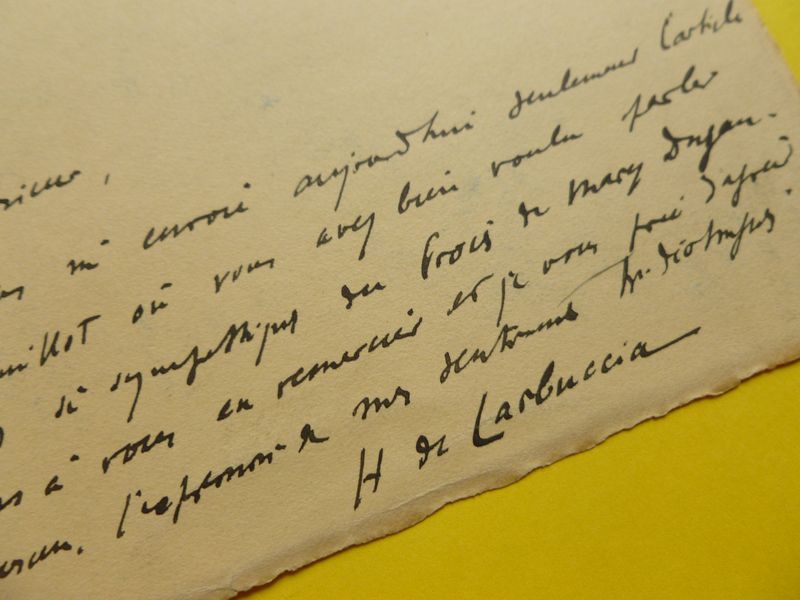 sieur,
m'envoie aujourd'hui seulement l'article
où vous avez bien voulu parler
si sympathique du Procès de Mary Dugan.
à vous en remercier et je vous prie d'agréer
l'expression de mes sentiments très distingués.
H de Carbuccia